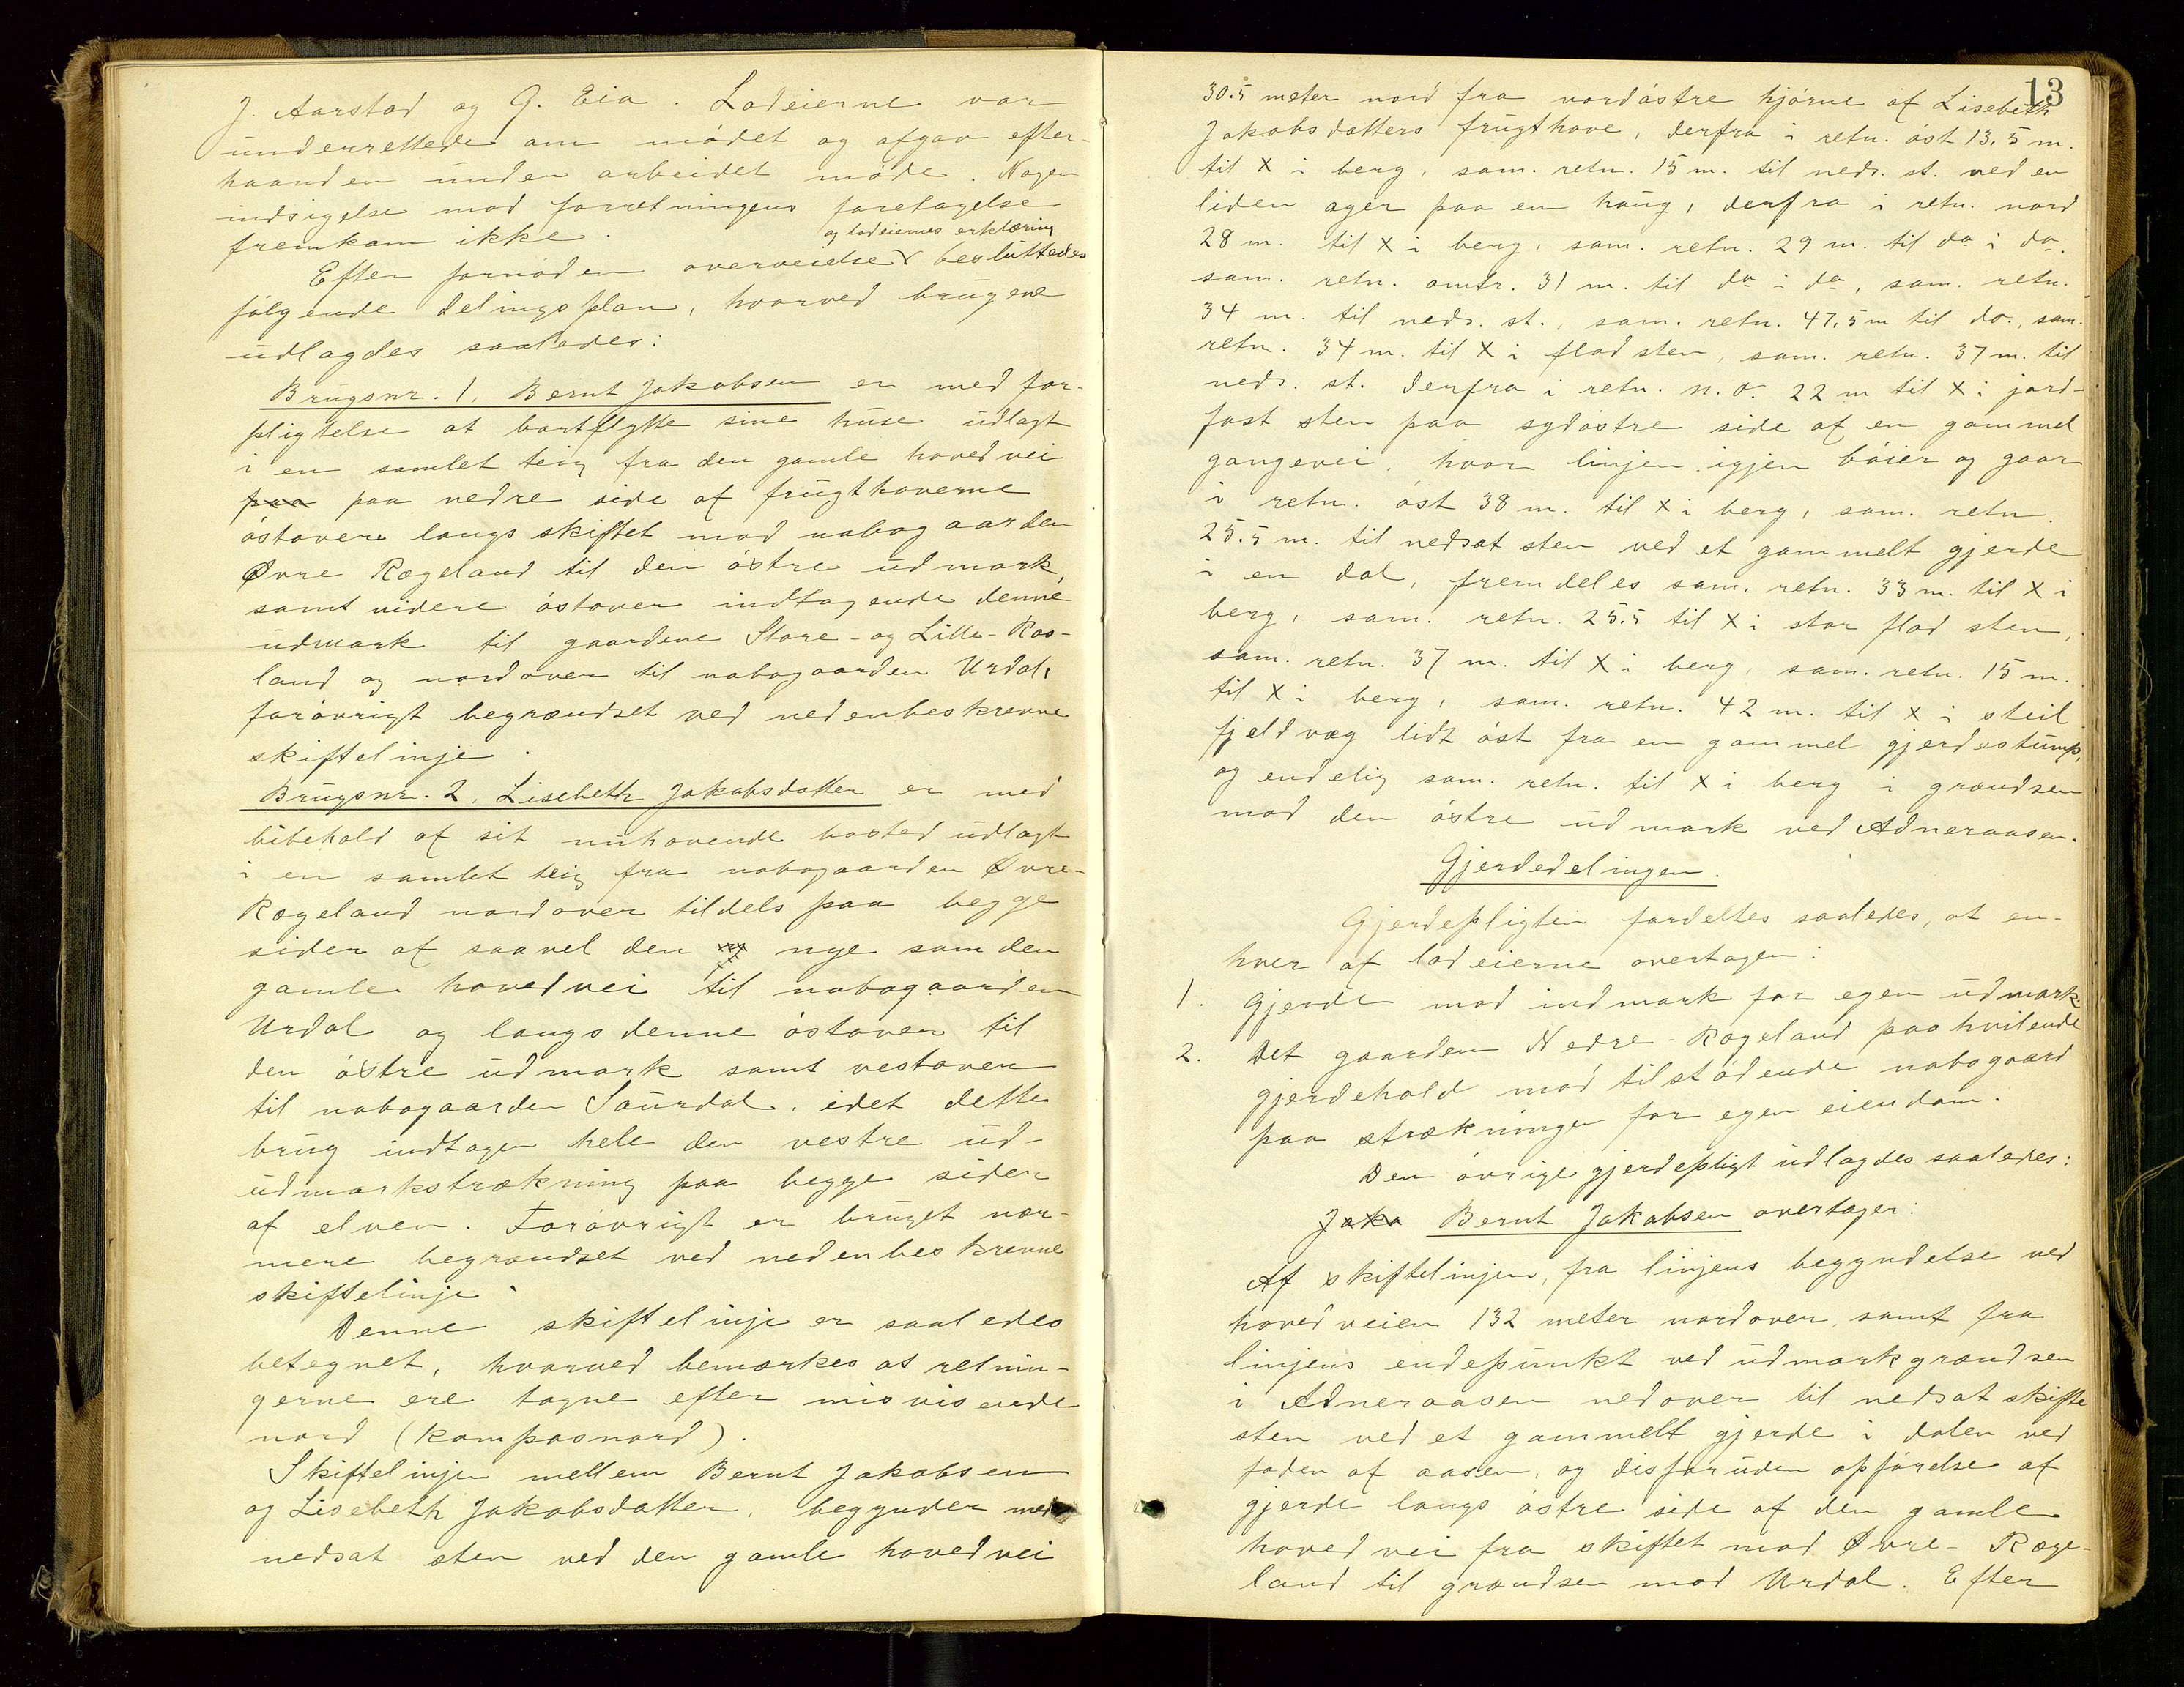 J. Aarstad og G. Eia. Lodeierne var
underrettede om mødet og afgav efter-
haanden under arbeidet møde. Nogen
indsigelse mod forretningens foretagelse
fremkom ikke.
og lodeiernes erklæring
Efter fornøden overveielse besluttedes
følgende delingsplan, hvorved brugene
udlagdes saaledes:
Brugsnr. 1, Bernt Jakobsen er med for-
pligtelse at bortflytte sine huse udlagt
i en samlet teig fra den gamle hovedvei
paa paa nedre side af frugthaverne
østover langs skiftet mod nabogaarden
Øvre Rægeland til den østre udmark,
samt videre østover indtagende denne
udmark til gaardene Store- og Lille-Ros-
land og nordover til nabogaarden Urdal,
forøvrigt begrændset ved nedenbeskrevne
skiftelinje.
Brugsnr. 2, Lisebeth Jakobsdatter er med
bibehold af sit nuhavende bosted udlagt
i en samlet teig fra nabogaarden Øvre-
Rægeland nordover tildels paa begge
sider af saavel den nye som den
gamle hovedvei til nabogaarden
Urdal og langs denne østover til
den østre udmark samt vestover
til nabogaarden Saurdal, idet dette
brug indtager hele den vestre ud-
udmarkstrækning paa begge sider
af elven. Forøvrigt er bruget nær-
mere begrændset ved nedenbeskrevne
skiftelinje.
Denne skiftelinje er saaledes
betegnet, hvorved bemærkes at retnin-
gerne ere tagne efter misvisende
nord (kompasnord).
Skiftelinjen mellem Bernt Jakobsen
og Lisebeth Jakobsdatter, begynder med
nedsat sten ved den gamle hovedvei
13
30.5 meter nord fra nordøstre hjørne af Lisebeth
Jakobsdatters frugthave, derfra i retn. øst 13,5 m.
til X i berg, sam. retn. 15 m. til neds. st. ved en
liden ager paa en haug, derfra i retn. nord
28 m. til X i berg, sam. retn. 29 m. til do i do.
sam. retn. omtr. 31 m. til do i do, sam. retn.
34 m. til neds. st., sam. retn. 47,5 m til do., sam.
retn. 34 m. til X i flad sten, sam. retn. 37 m. til
neds. st. Derfra i retn. n.o. 22 m til X i jord-
fast sten paa sydøstre side af en gammel
gangevei, hvor linjen igjen bøier og gaar
i retn. øst 38 m. til X i berg, sam. retn.
25.5 m. til nedsat sten ved et gammelt gjerde
i en dal, fremdeles sam. retn. 33 m. til X i
berg, sam. retn. 25.5 til X i stor flad sten,
sam. retn. 37 m. til X i berg, sam. retn. 15 m.
til X i berg, sam. retn. 42 m. til X i steil
fjeldvæg lidt øst fra en gammel gjerdestump,
og endelig sam. retn. til X i berg i grændsen
mod den østre udmark ved Adneraasen.
Gjerdedelingen.
Gjerdepligten fordeltes saaledes, at en-
hver af lodeierne overtager:
1. Gjerde mod indmark for egen udmark
2. Det gaarden Nedre-Rægeland paahvilende
gjerdehold mod tilstødende nabogaard
paa strækninger for egen eiendom.
Den øvrige gjerdepligt udlagdes saaledes:
Jako Bernt Jakobsen overtager:
Af skiftelinjen, fra linjens begyndelse ved
hovedveien 132 meter nordover, samt fra
linjens endepunkt ved udmarkgrændsen
i Adneraasen nedover til nedsat skifte
sten ved et gammelt gjerde i dalen ved
foden af aasen, og desforuden opførelse af
gjerde langs østre side af den gamle
hovedvei fra skiftet mod Øvre-Ræge-
land til grændsen mod Urdal. Efter